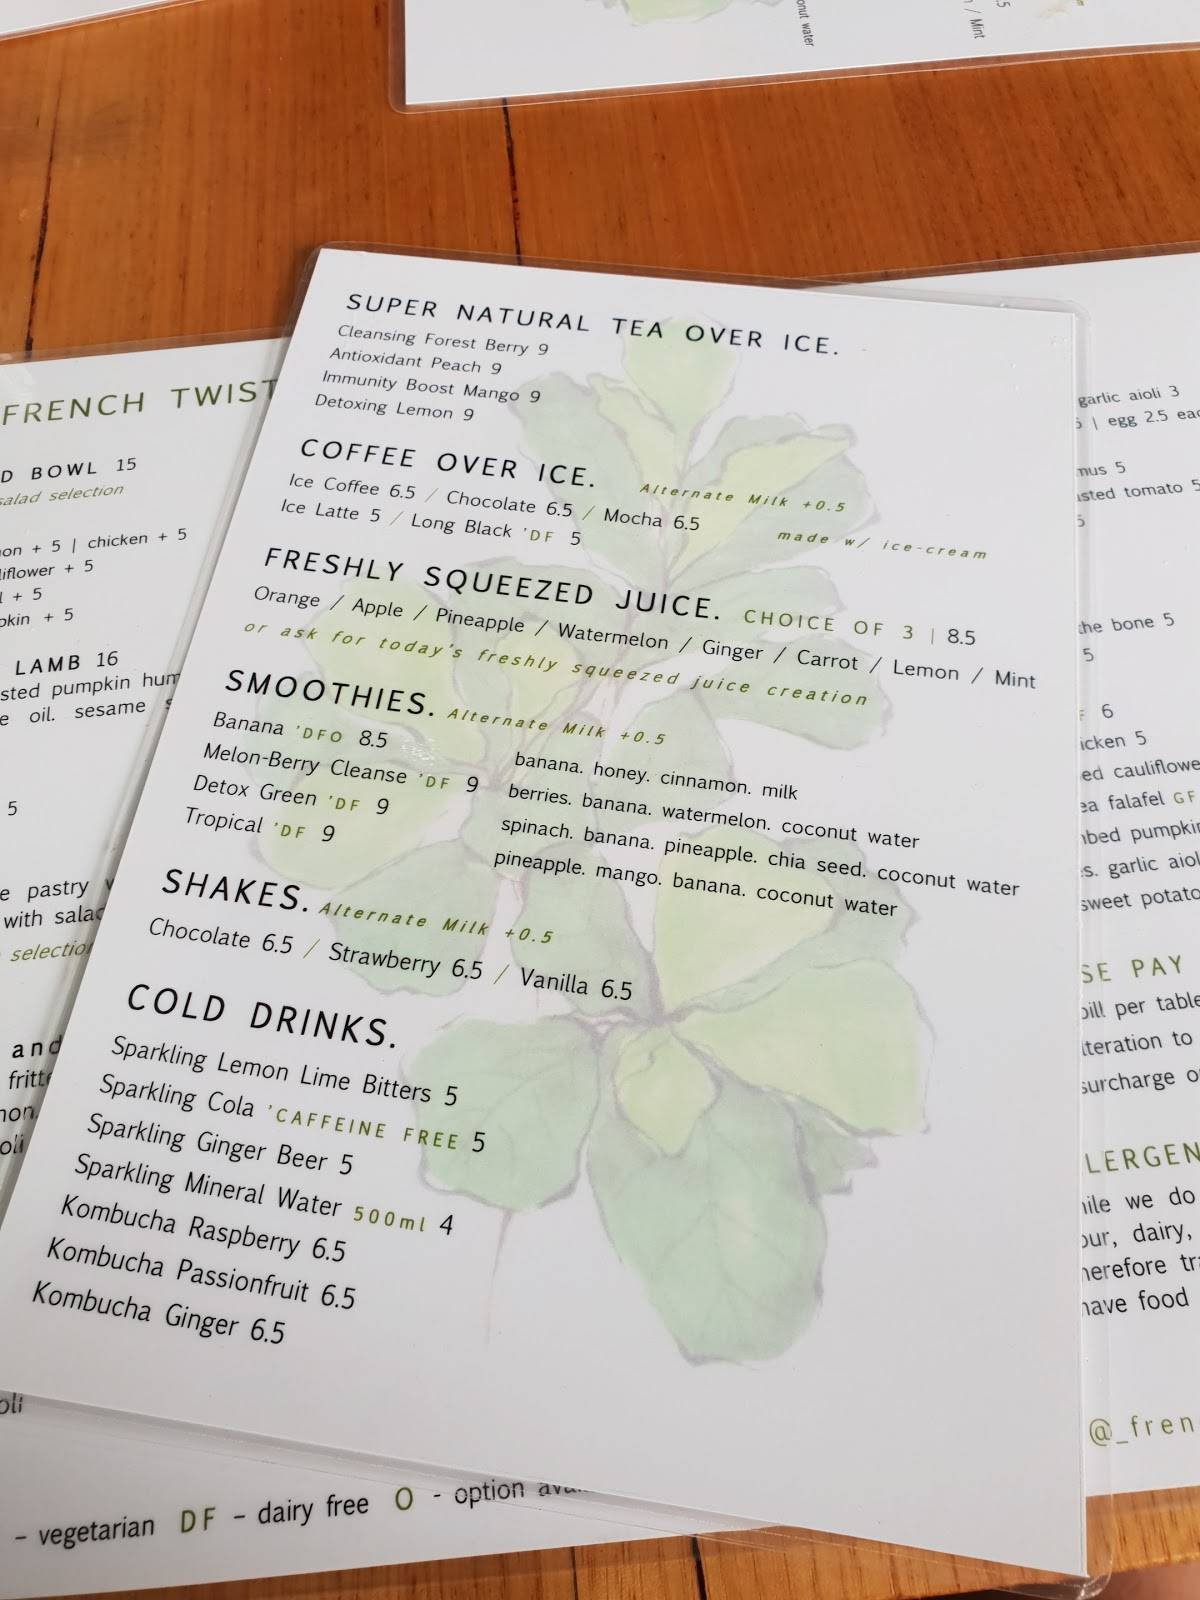 onut water
/ Mint
SUPER NATURAL TEA OVER ICE.
Cleansing Forest Berry 9
Antioxidant Peach 9
Immunity Boost Mango 9
Detoxing Lemon 9
COFFEE OVER ICE. Alternate Milk +0.5
Ice Coffee 6.5 / Chocolate 6.5 / Mocha 6.5 made w/ ice-cream
Ice Latte 5 / Long Black 'DF 5
FRESHLY SQUEEZED JUICE. CHOICE OF 3 | 8.5
Orange / Apple / Pineapple / Watermelon / Ginger / Carrot / Lemon / Mint
or ask for today's freshly squeezed juice creation
SMOOTHIES. Alternate Milk +0.5
Banana 'DFO 8.5 banana. honey. cinnamon. milk
Melon-Berry Cleanse 'DF 9 berries. banana. watermelon. coconut water
Detox Green 'DF 9 spinach. banana. pineapple. chia seed. coconut water
Tropical 'DF 9 pineapple. mango. banana. coconut water
SHAKES. Alternate Milk +0.5
Chocolate 6.5 / Strawberry 6.5 / Vanilla 6.5
COLD DRINKS.
Sparkling Lemon Lime Bitters 5
Sparkling Cola 'CAFFEINE FREE 5
Sparkling Ginger Beer 5
Sparkling Mineral Water 500ml 4
Kombucha Raspberry 6.5
Kombucha Passionfruit 6.5
Kombucha Ginger 6.5
FRENCH TWIST
D BOWL 15
salad selection
on + 5 | chicken + 5
liflower + 5
l + 5
pkin + 5
LAMB 16
sted pumpkin hum
e oil. sesame s
5
e pastry
with salad
selection
and
fritte
non.
oli
oli
- vegetarian DF - dairy free O - option
garlic aioli 3
5 | egg 2.5 eac
mus 5
asted tomato 5
5
the bone 5
5
F 6
icken 5
ed cauliflowe
ea falafel GF
mbed pumpki
s. garlic aiol
sweet potato
SE PAY
bill per table
lteration to
surcharge o
LERGEN
hile we do
our, dairy,
herefore tra
have food
@_fren